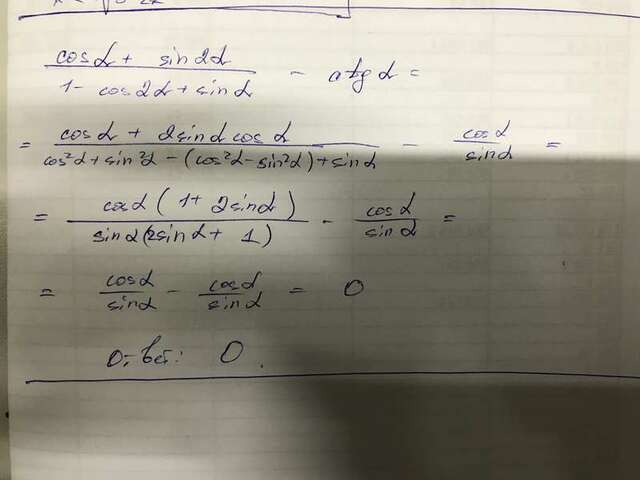 cosα + sin2α / 1 - cos2α + sinα - ctg α =
= cosα + 2sinα cosα / cos²α + sin²α - (cos²α - sin²α) + sinα - cosα / sinα =
= cosα (1 + 2sinα) / sinα (2sinα + 1) - cosα / sinα =
= cosα / sinα - cosα / sinα = 0
О-вет: 0.